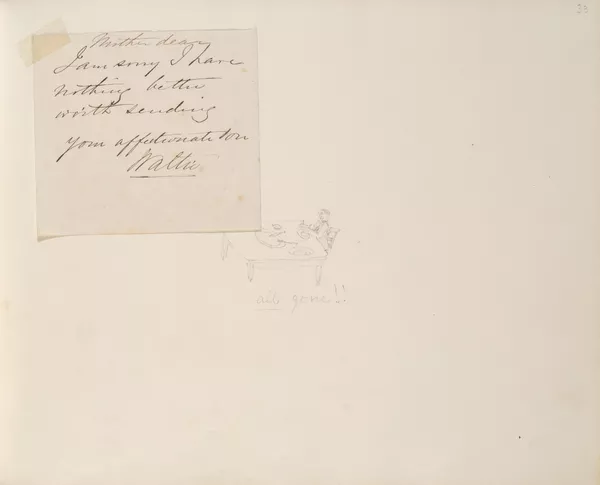 33
Mother dear
I am sorry I have
nothing better
worth sending
your affectionate son
Wallie.
all gone!!